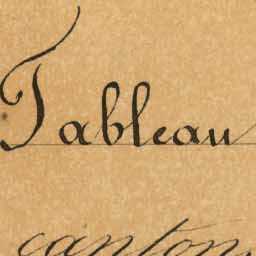 Tableau
canton